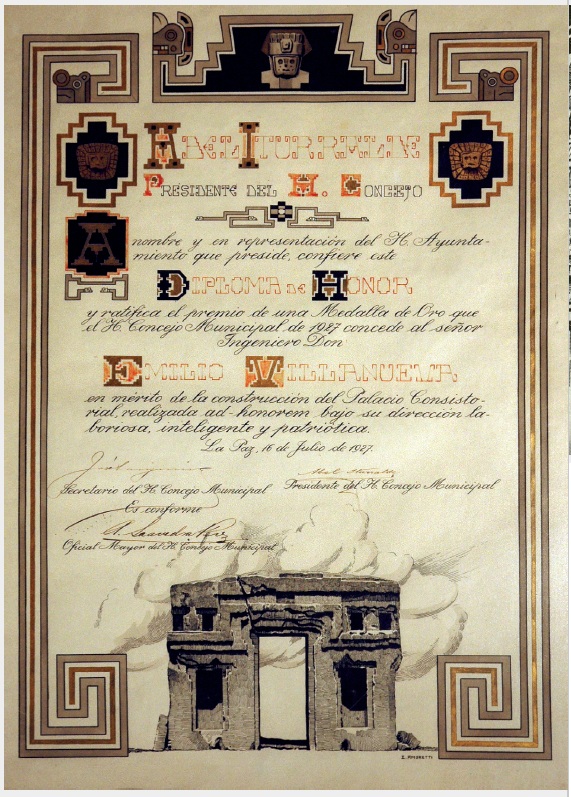 ABEL ITURRALDE
PRESIDENTE DEL H. CONCEJO
A nombre y en representación del H. Ayunta-
miento que preside, confiere este
DIPLOMA DE HONOR
y ratifica el premio de una Medalla de Oro que
el H. Concejo Municipal de 1927 concede al señor
Ingeniero Don
EMILIO VILLANUEVA
en mérito de la construcción del Palacio Consisto-
rial, realizada ad-honorem bajo su dirección la-
boriosa, inteligente y patriótica.
La Paz, 16 de Julio de 1927.
Secretario del H. Concejo Municipal Presidente del H. Concejo Municipal
Es conforme
Oficial Mayor del H. Concejo Municipal